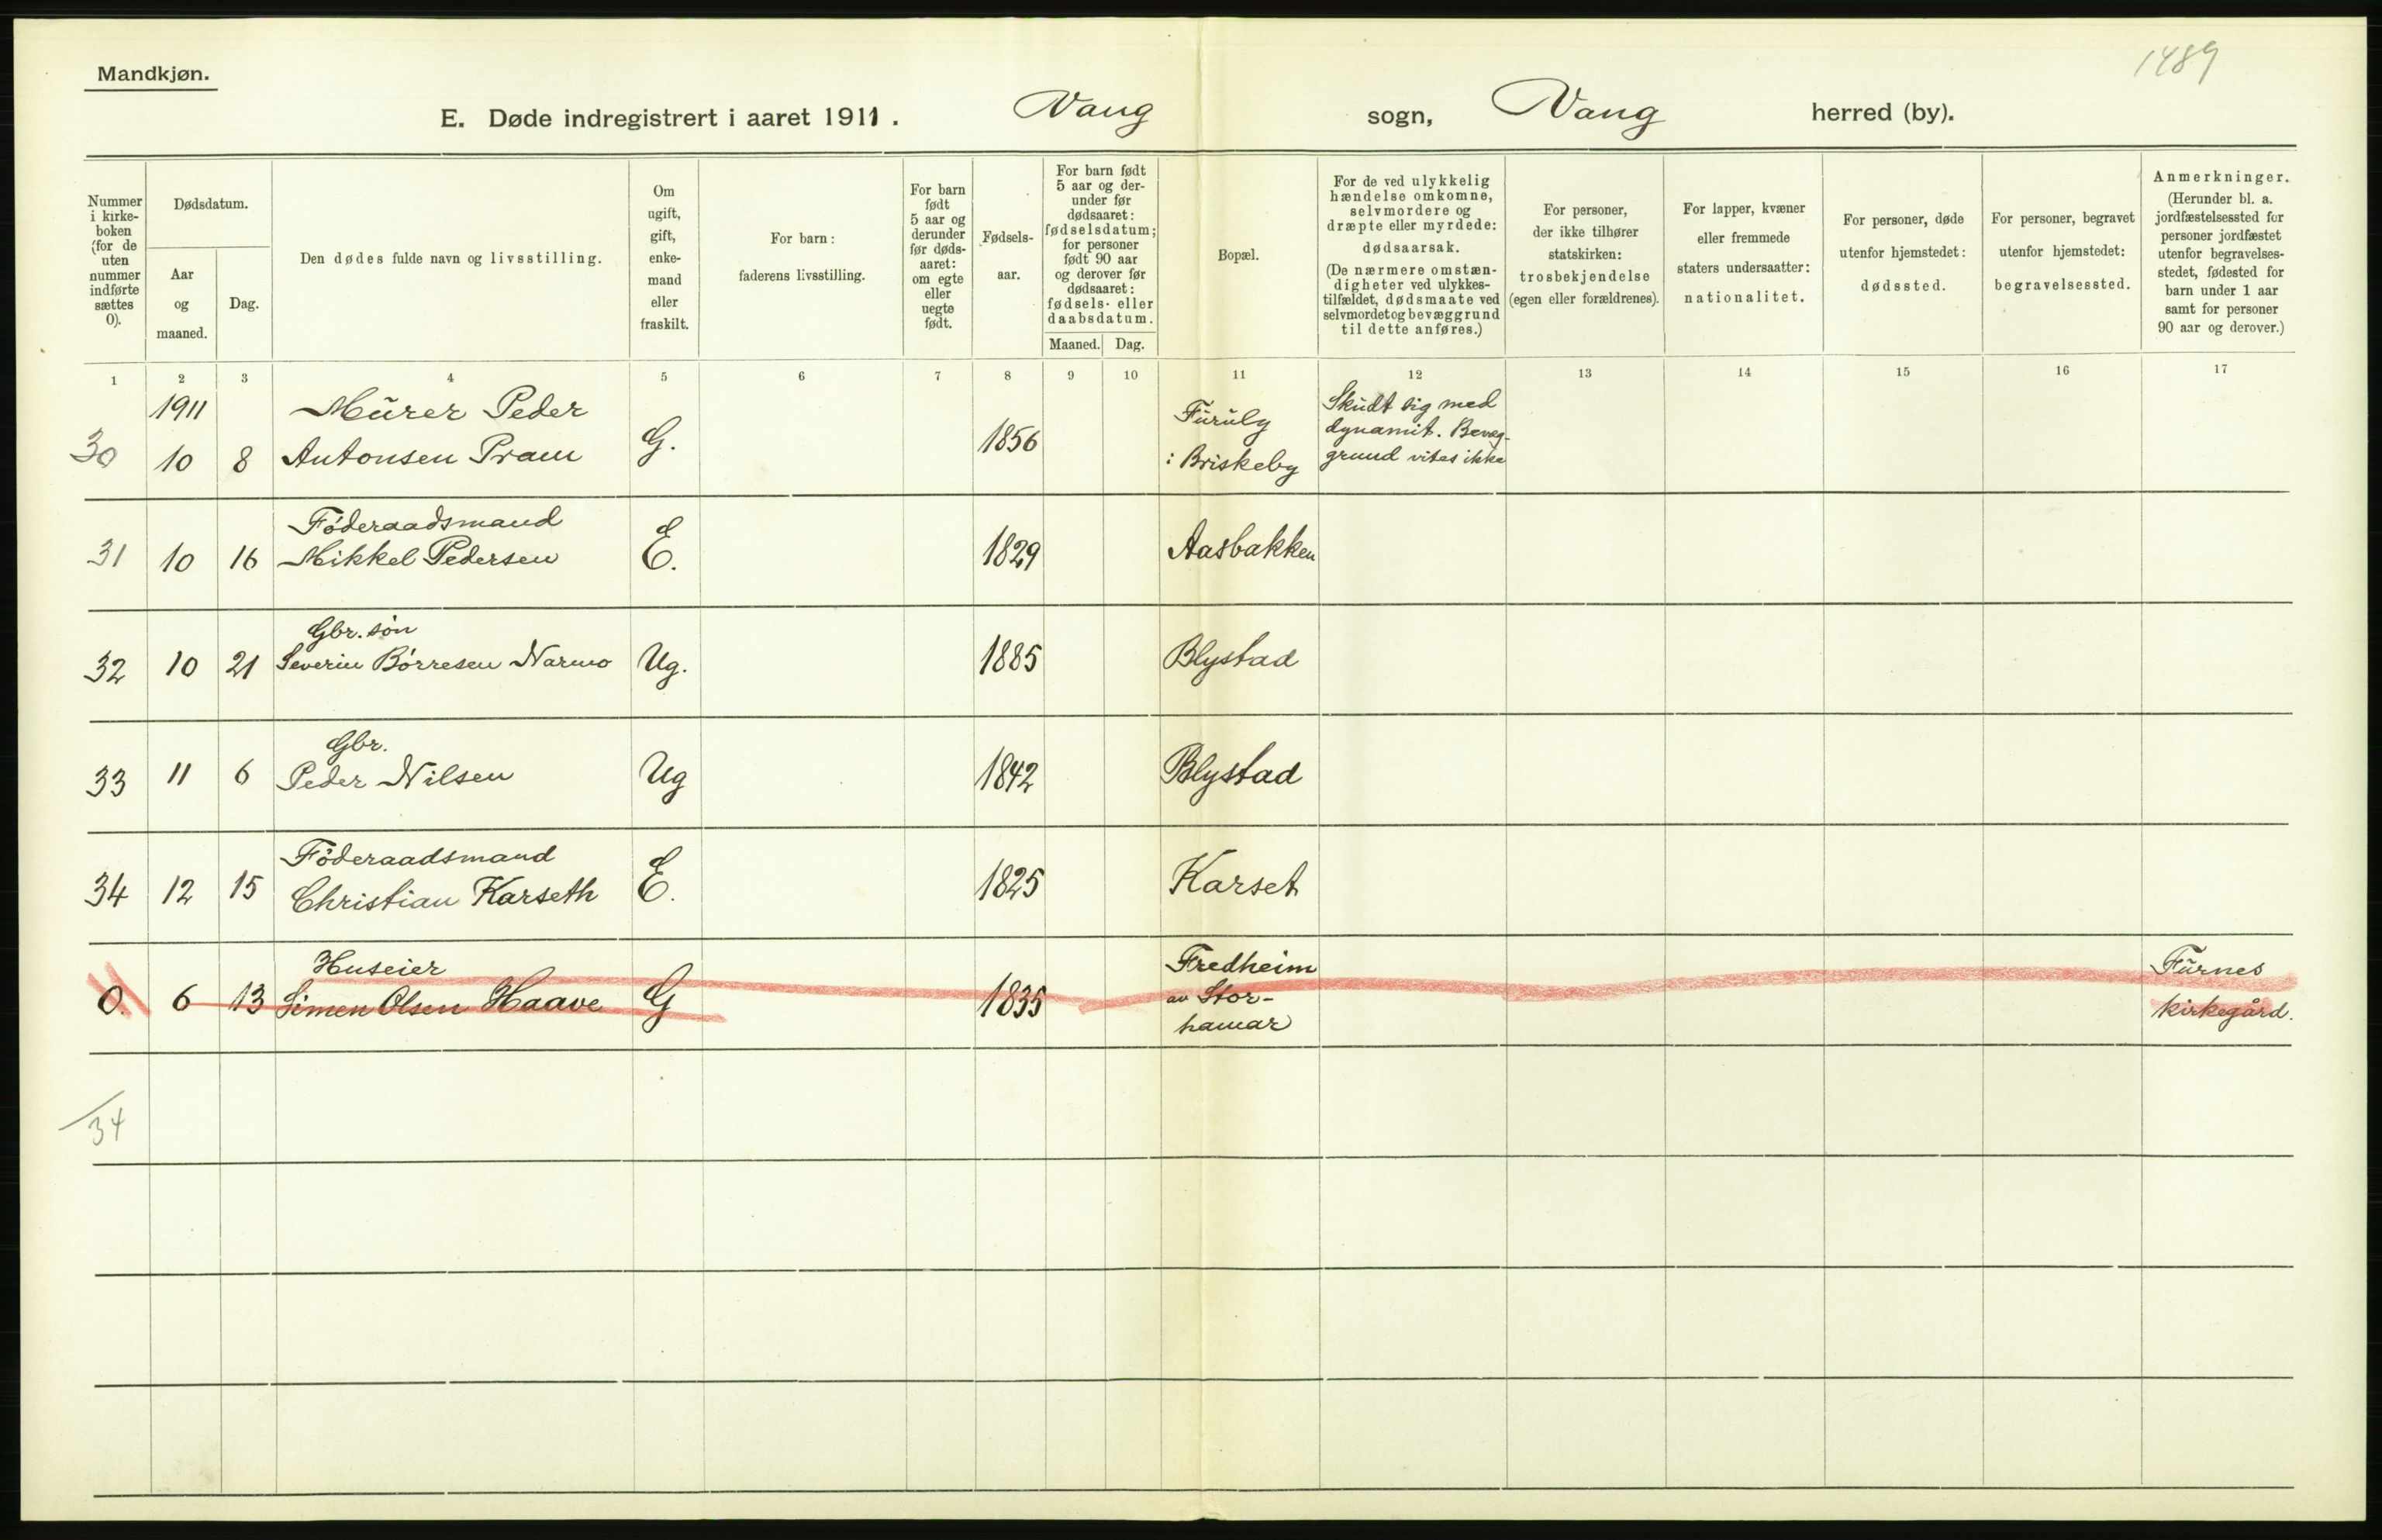 Mandkjøn.
1489
E. Døde indregistrert i aaret 1911. Vang sogn, Vang herred (by).
Nummer
i kirke-
boken
(for de
uten
nummer
indførte
sættes
0).
Dødsdatum.
Aar
og
maaned.
Dag.
Den dødes fulde navn og livsstilling.
Om
ugift,
gift,
enke-
mand
eller
fraskilt.
For barn:
faderens livsstilling.
For barn
født
5 aar og
derunder
før døds-
aaret:
om egte
eller
uegte
født.
Fødsels-
aar.
For barn født
5 aar og der-
under før
dødsaaret:
fødselsdatum;
for personer
født 90 aar
og derover før
dødsaaret:
fødsels- eller
daabsdatum.
Maaned. Dag.
Bopæl.
For de ved ulykkelig
hændelse omkomne,
selvmordere og
dræpte eller myrdede:
dødsaarsak.
(De nærmere omstæn-
digheter ved ulykkes-
tilfældet, dødsmaate ved
selvmordet og bevæggrund
til dette anføres.)
For personer,
der ikke tilhører
statskirken:
trosbekjendelse
(egen eller forældrenes).
For lapper, kvæner
eller fremmede
staters undersaatter:
nationalitet.
For personer, døde
utenfor hjemstedet:
dødssted.
For personer, begravet
utenfor hjemstedet:
begravelsessted.
Anmerkninger.
(Herunder bl. a.
jordfæstelsessted for
personer jordfæstet
utenfor begravelses-
stedet, fødested for
barn under 1 aar
samt for personer
90 aar og derover.)
1 2 3 4 5 6 7 8 9 10 11 12 13 14 15 16 17
1911 Mūrer Peder Fūrūly Skūdt sig med
dynamit. Bevæg-
30 10 8 Antonsen Pram G. 1856 i Briskeby grund vites ikke
Föderaadsmand
31 10 16 Mikkel Pedersen E. 1829 Aasbakken
Gbr. sön
32 10 21 Severin Börresen Narmo Ug. 1885 Blystad
Gbr.
33 11 6 Peder Nilsen Ug 1842 Blystad
Föderaadsmand
34 12 15 Christian Karseth E. 1825 Karset
Huseier Fredheim Fūrnes
0. 6 13 Simen Olsen Haave G 1835 av Stor- kirkegård.
hamar
34